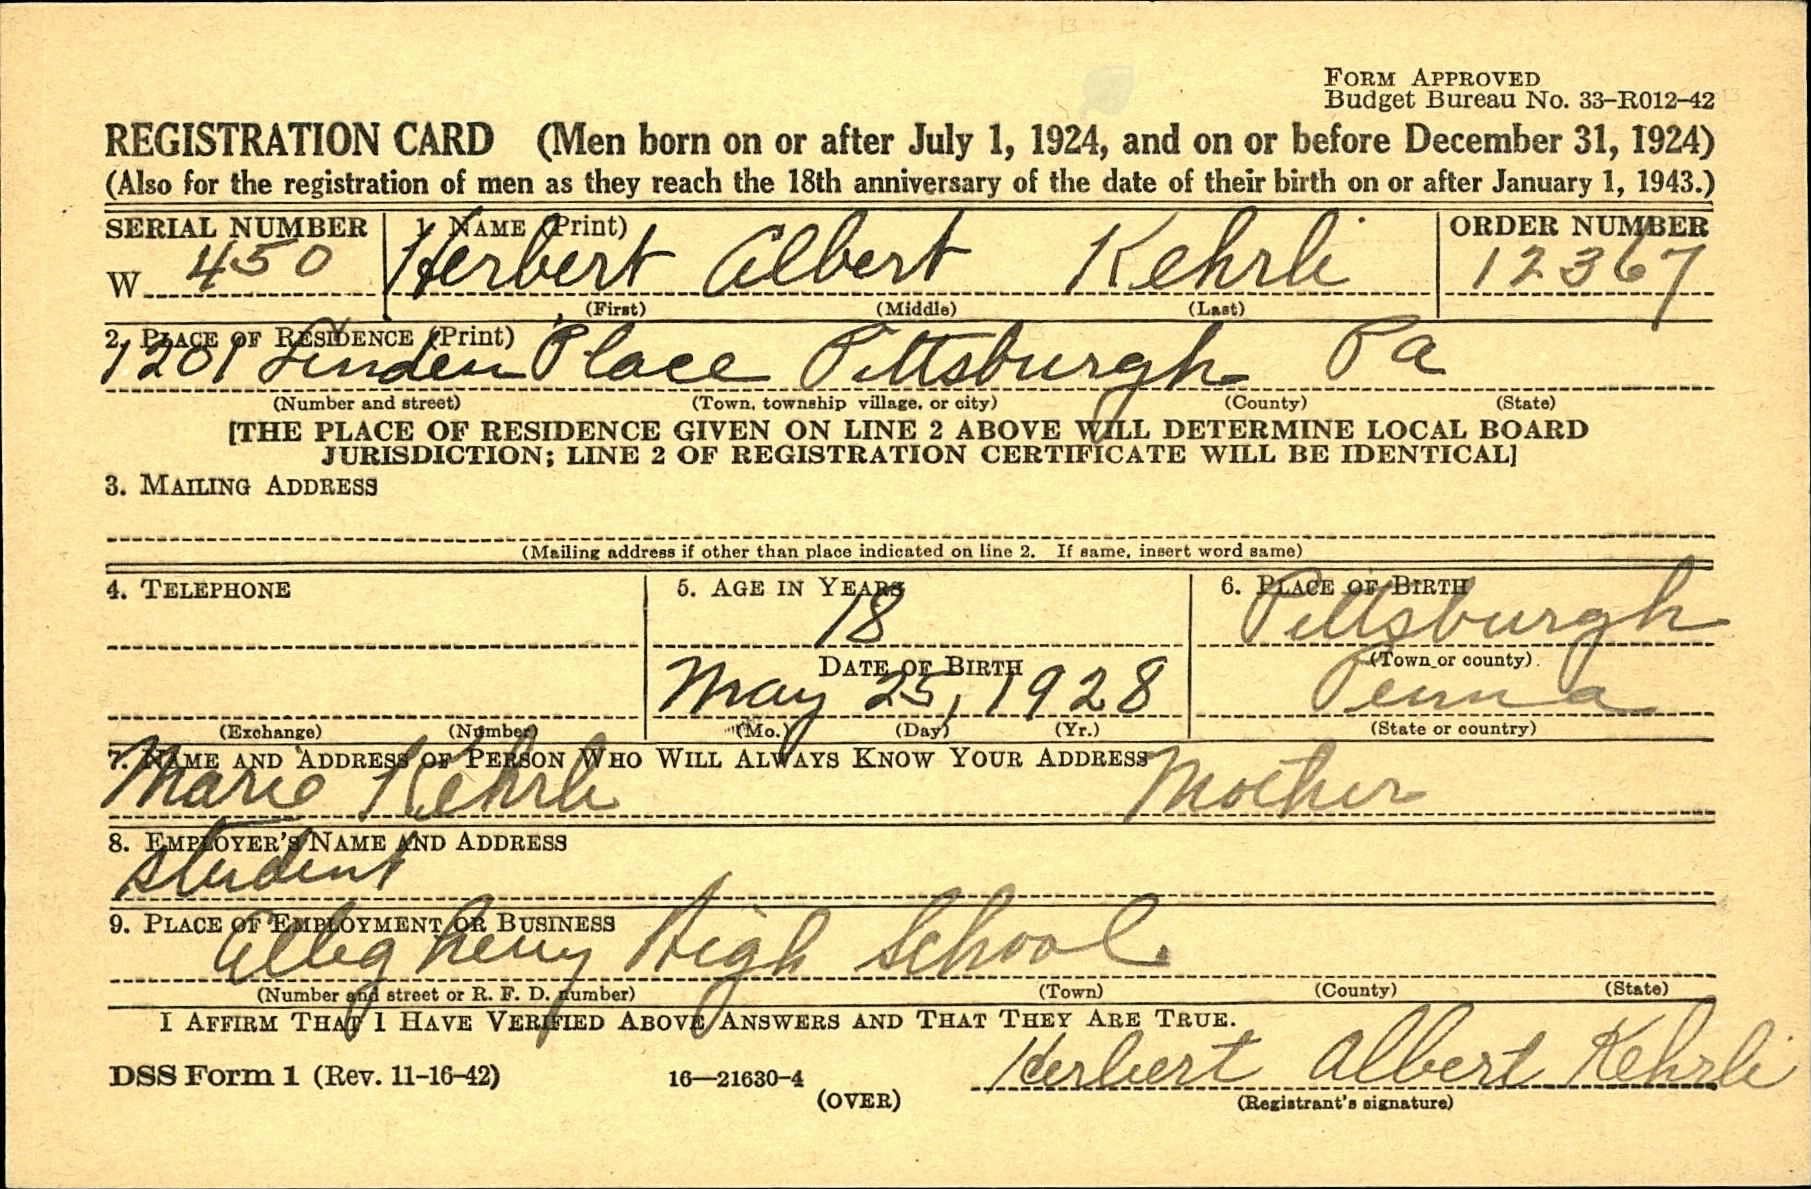 FORM APPROVED
Budget Bureau No. 33-R012-42
REGISTRATION CARD (Men born on or after July 1, 1924, and on or before December 31, 1924)
(Also for the registration of men as they reach the 18th anniversary of the date of their birth on or after January 1, 1943.)
SERIAL NUMBER 1. NAME (Print) ORDER NUMBER
W 450 Herbert Albert Kehrli 12367
(First) (Middle) (Last)
2. PLACE OF RESIDENCE (Print)
1201 Linden Place Pittsburgh Pa
(Number and street) (Town, township village, or city) (County) (State)
[THE PLACE OF RESIDENCE GIVEN ON LINE 2 ABOVE WILL DETERMINE LOCAL BOARD
JURISDICTION; LINE 2 OF REGISTRATION CERTIFICATE WILL BE IDENTICAL]
3. MAILING ADDRESS
(Mailing address if other than place indicated on line 2. If same, insert word same)
4. TELEPHONE 5. AGE IN YEARS 6. PLACE OF BIRTH
18 Pittsburgh
DATE OF BIRTH (Town or county)
May 25, 1928 Penna
(Exchange) (Number) (Mo.) (Day) (Yr.) (State or country)
7. NAME AND ADDRESS OF PERSON WHO WILL ALWAYS KNOW YOUR ADDRESS
Marie Kehrli Mother
8. EMPLOYER'S NAME AND ADDRESS
student
9. PLACE OF EMPLOYMENT OR BUSINESS
Allegheny High School
(Number and street or R. F. D. number) (Town) (County) (State)
I AFFIRM THAT I HAVE VERIFIED ABOVE ANSWERS AND THAT THEY ARE TRUE.
DSS Form 1 (Rev. 11-16-42) 16—21630-4 Herbert Albert Kehrli
(OVER) (Registrant's signature)